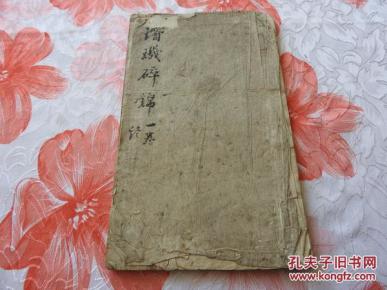 璣碎錦
一卷
孔夫子旧书网
www.kongfz.com